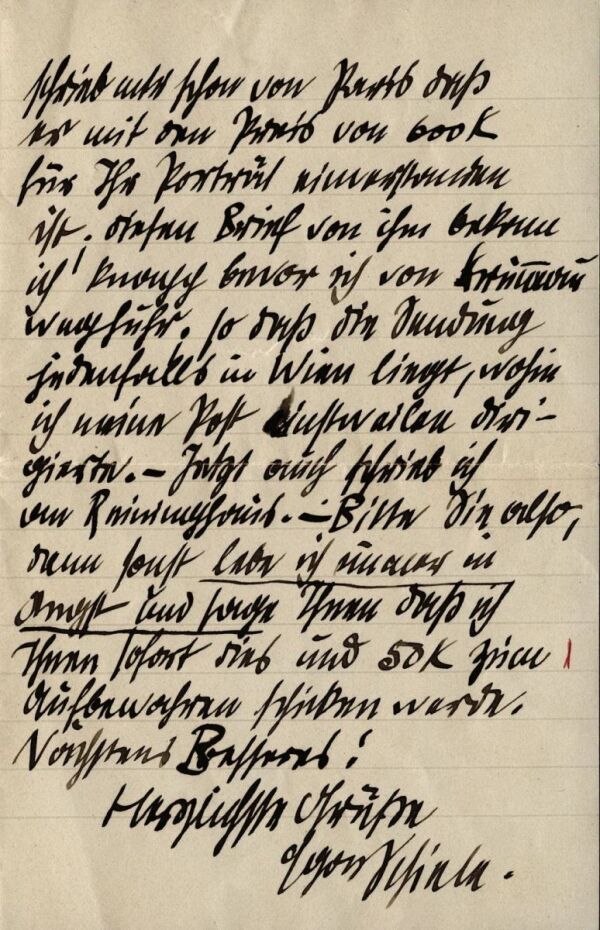 schrieb mir schon von Paris daß
er mit den Preis von 600 K
für Ihr Porträt einverstanden
ist; diesen Brief von ihm bekam
ich knapp bevor ich von Krummau
wegfuhr, so daß die Sendung
jedenfalls in Wien liegt, wohin
ich meine Post einstweilen diri-
gierte. – Jetzt auch schrieb ich
an Reininghaus. – Bitte Sie also,
denn sonst lebe ich immer in
Angst und sage Ihnen daß ich
Ihnen sofort dies und 50 K zum
Aufbewahren schicken werde.
Nächstens Besseres!
Herzlichste Grüße
Egon Schiele.